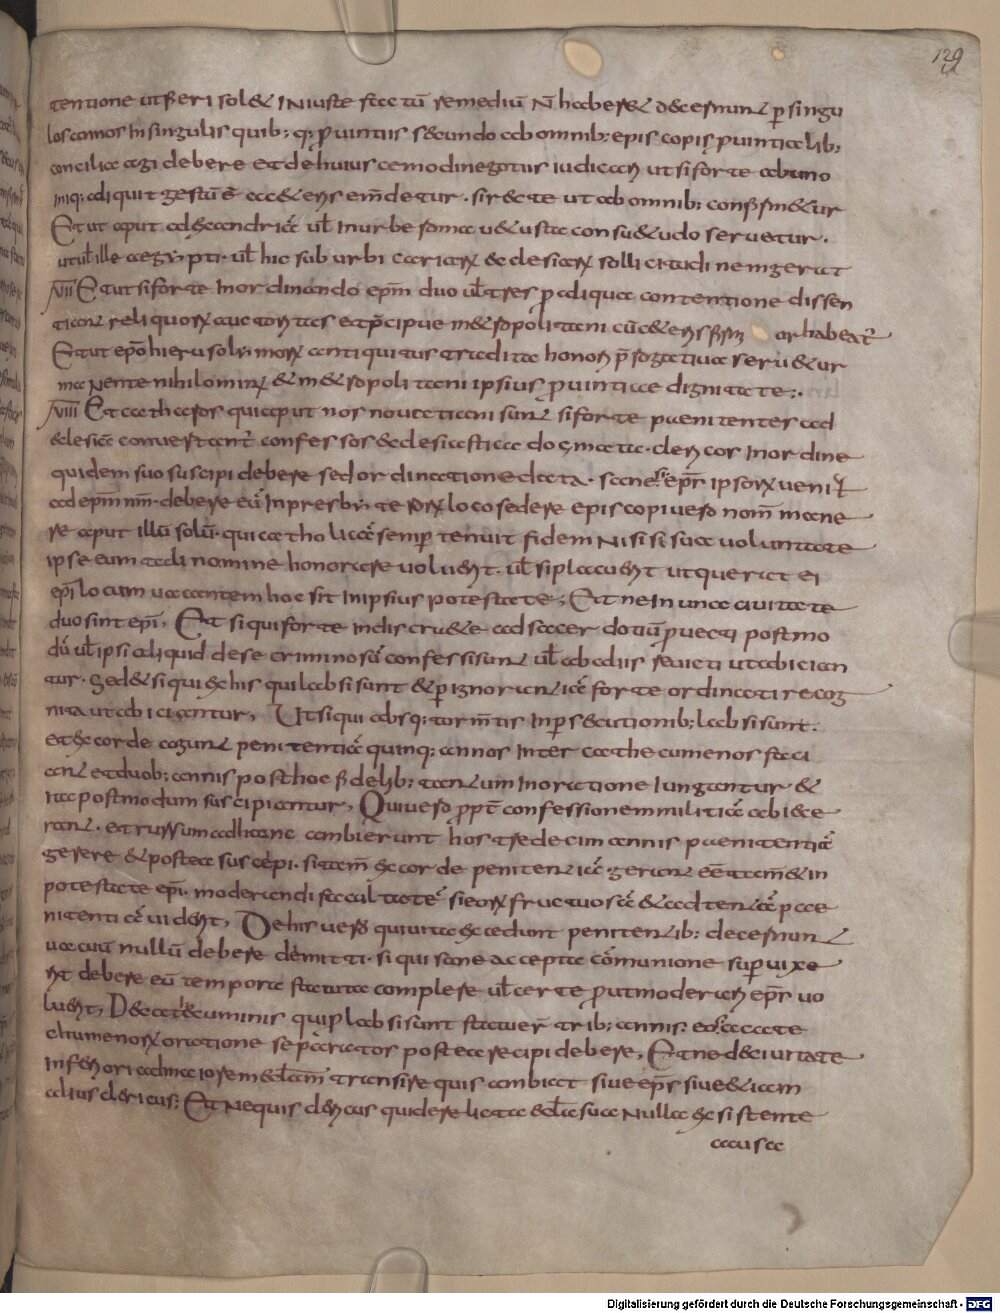 129
tentione ut fieri solet iniuste factū remediū n̄ habere & decernunt p̱ singu
los annos in singulis quibꝫ qꝫ p̱uintiis secundo ab omnibꝫ episcopis p̱uintialibꝫ
concilia agi debere et de huiuscemodi negotiis iudicari ut si forte ab uno
iniqꝫ aliquit gestū ē a ceteris em̄detur · si recte ut ab omnibꝫ confirmetur
Et ut aput alexandriā ul̄ in urbe roma uetusta consuetudo seruetur ·
ut ul̄ ille aegypti · ul̄ hic suburbicariarꝝ ecclesiarꝝ sollicitudinem gerat
VII Et ut si forte in ordinando ep̄m duo ul̄ tres p̱ aliqua contentione dissen
tiant reliquorꝝ auctoritas et p̄cipue metropolitani cū ceteris firmior habeat̄
Et ut ep̄o hierusolimorꝝ antiquitus tradita honoris p̄rogatiua seruetur
manente nihilominꝰ & metropolitani ipsius p̱uintiae dignitate ;·
VIII Et catharos qui aput nos nouatiani sunt si forte paenitentes ad
eclesiā conuertant̄ confessos eclesiastica dogmata · clericos in ordine
quidem suo suscipi debere sed ordinatione data · sane si ep̄s ipsorꝝ uenit
ad ep̄m n̄m · debere eū in presbyterorꝝ loco sedere episcopi uero nom̄ mane
re aput illū solū · qui catholicā semp̱ tenuit fidem nisi si sua uoluntate
ipse eum tali nomine honorare uoluerit · ul̄ si placuerit ut querat ei
ep̄i locum uacantem hoc sit in ipsius potestate ; Et ne in una ciuitate
duo sint ep̄i , Et si qui forte indiscrete ad sacerdotiū p̱uecti postmo
dū ul̄ ipsi aliquid de se criminosū confessi sunt ul̄ ab aliis reuicti ut abician
tur · Sed et si qui ex his qui labsi sunt & p̱ ignorantiā forte ordinati recog
niti ut abiciantur , Ut si qui absqꝫ tormentis in p̱secutionibꝫ labsi sunt ·
et ex corde agunt penitentiā quinqꝫ annos inter cathecumenos faci
ant et duobꝫ annis post hoc fidelibꝫ tantum in oratione iungantur &
ita postmodum suscipiantur , Qui uero p̱pt̄ confessionem militiā abiece
rant · et rursum ad hanc ambierunt hos tredecim annis paenitentiā
gerere & postea suscepi · si tam̄ ex corde penitentiā gerant eē tam̄ & in
potestate ep̄i · moderandi facultatē si eorꝝ fructuosā & adtentā pae
nitentiā uiderit , De his uero qui uita excedunt penitentibꝫ decernunt
uacuū nullū debere demitti · si qui sane accepta cōmunione sup̱uixe
rit debere eū tempora statuta complere ul̄ certe p̱ut moderarit ep̄s uo
luerit , De catecuminis qui plabsi sunt statuer̄ tribꝫ annis eos a cate
chumenorꝝ oratione separatos postea recipi debere , Et ne de ciuitate
inferiori ad maiorem eclām transire quis ambiat siue ep̄s siue etiam
alius clericus ; Et ne quis clericus qui derelicta eclā sua nulla existente
causa
Digitalisierung gefördert durch die Deutsche Forschungsgemeinschaft - DFG